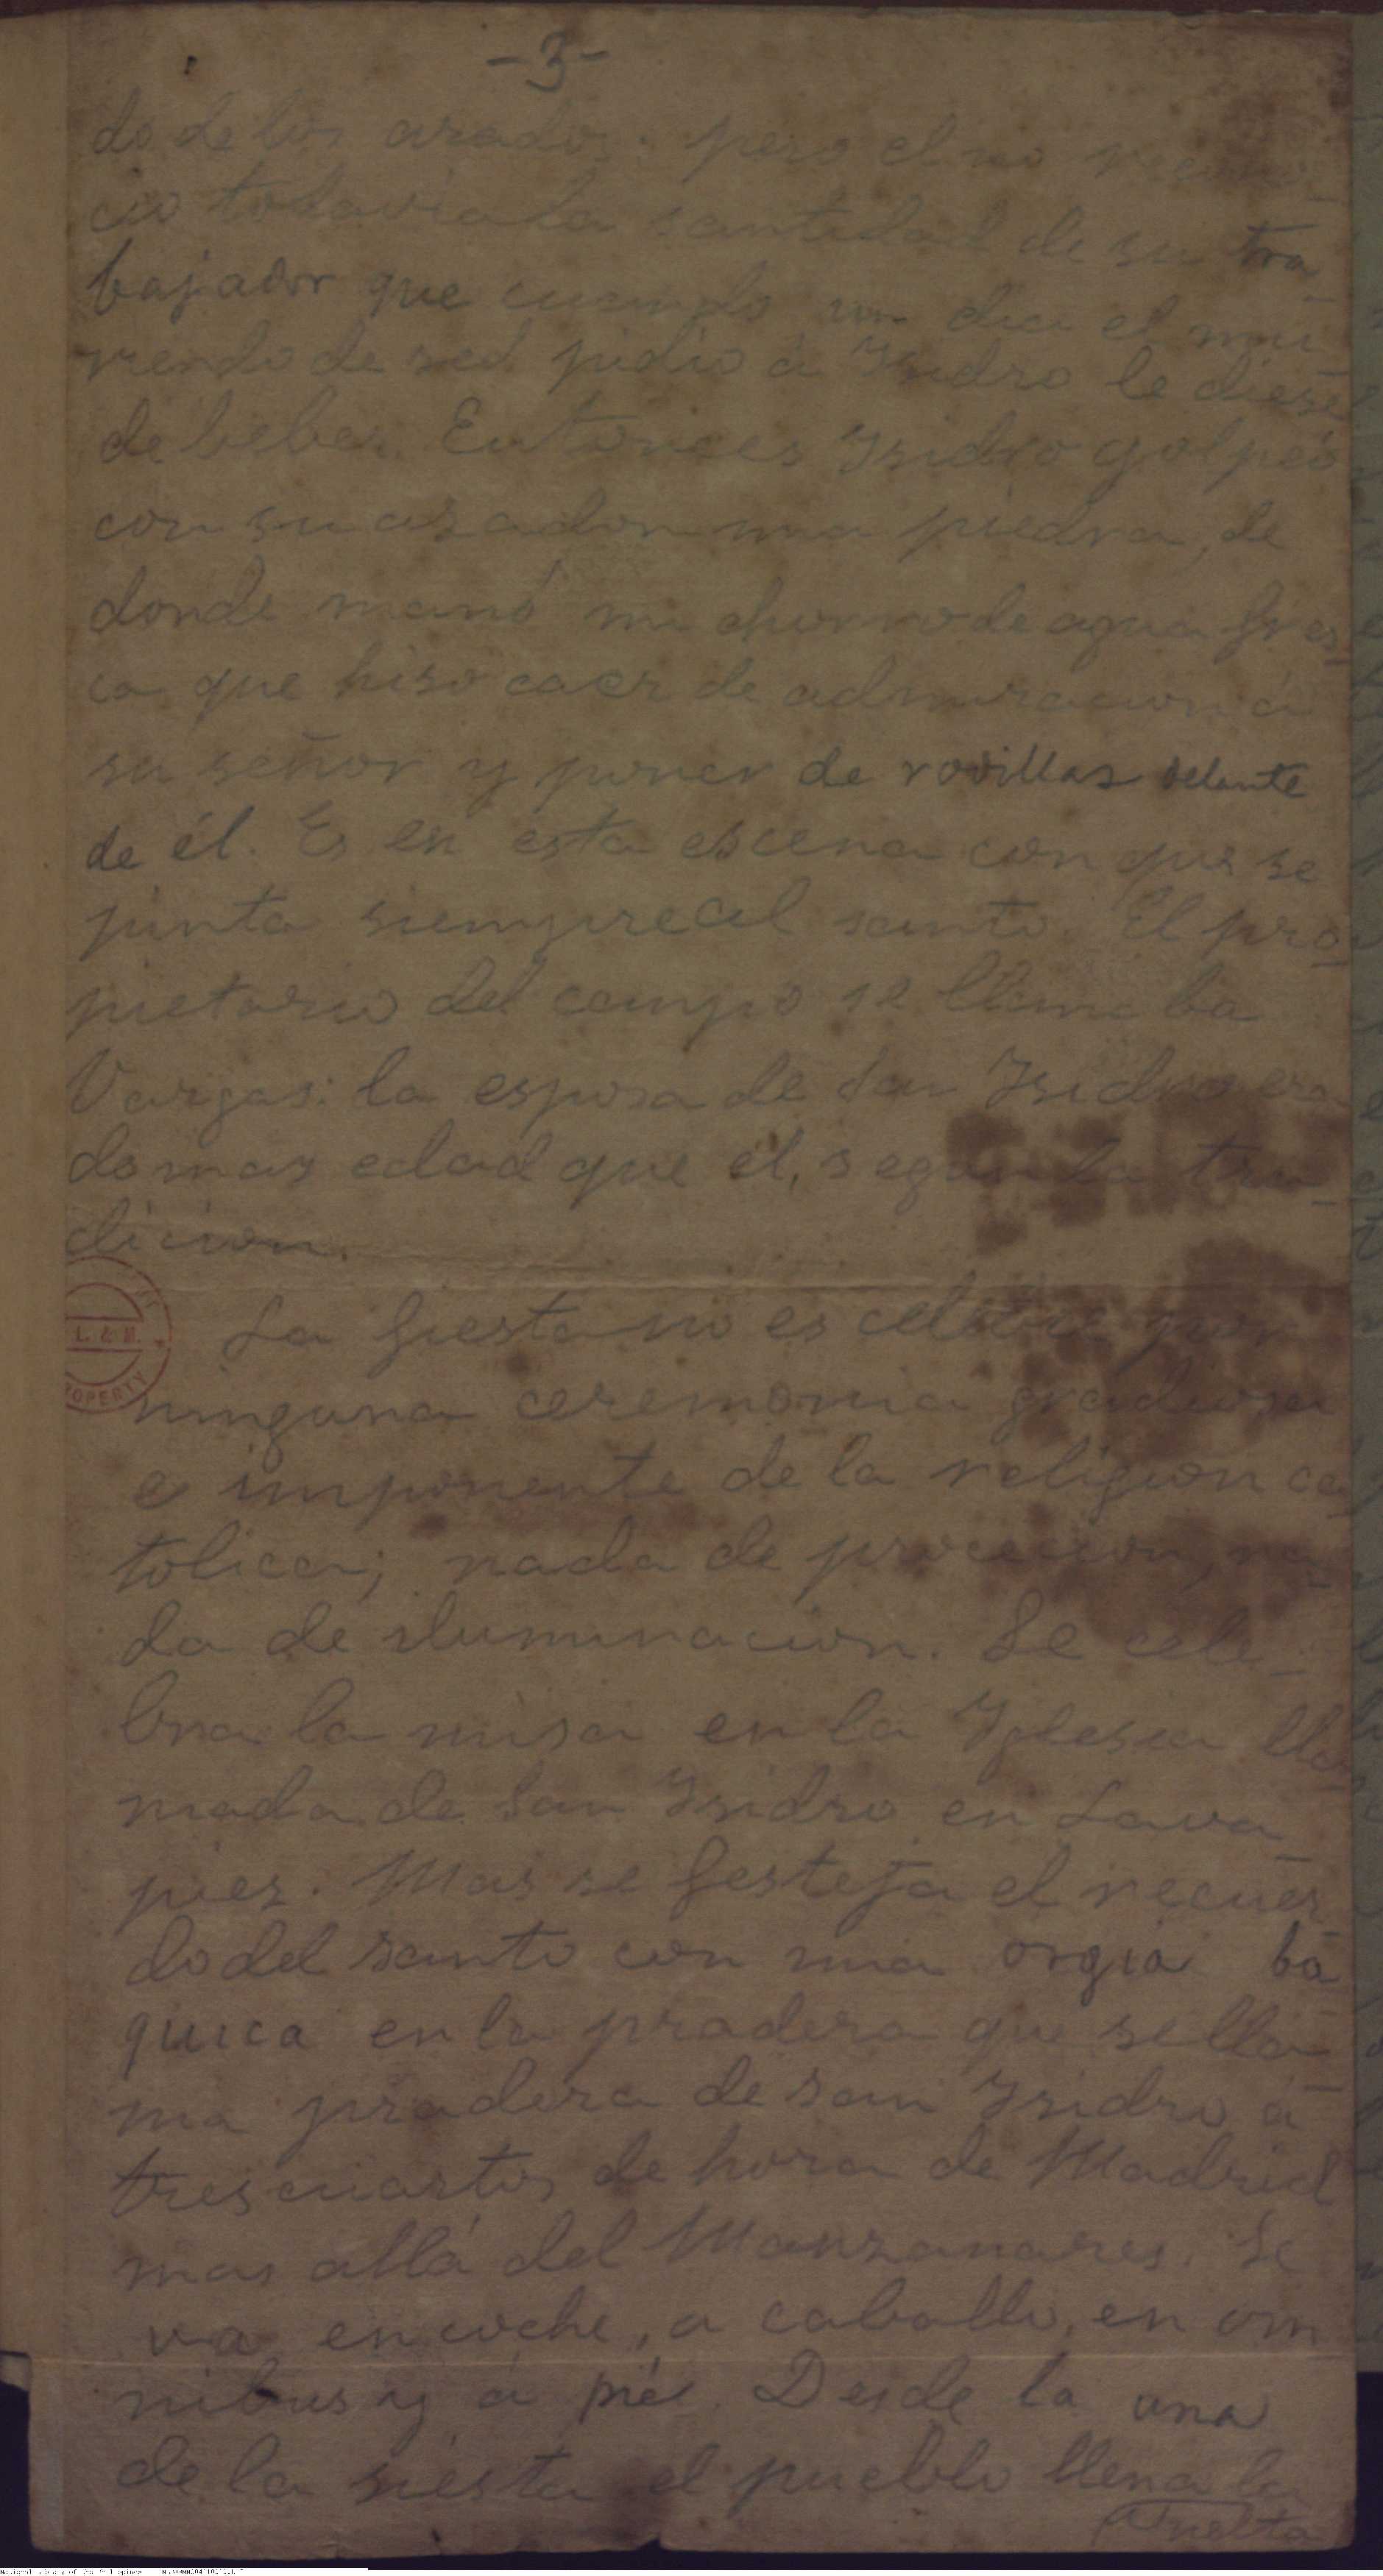 -3-
do de los arados. pero el no recono-
cio todavia la santidad de su tra-
bajador que cuando un dia el mu-
riendo de sed pidio á Ysidro le diese
de beber. Entonces Ysidro golpeó
con su azadon una piedra, de
donde manó un chorro de agua fres-
ca que hiso caer de admiracion á
su señor y poner de rodillas delante
de él. Es en esta escena con que se
pinta siempre al santo. El pro-
pietario del campo se llamaba
Vargas: la esposa de San Ysidro era
de mas edad que él, segun la tra-
dicion.
La fiesta no es celebre por
ninguna ceremonia gradiosa
e imponente de la religion ca-
tolica; nada de procesion, na-
da de iluminacion. Se cele-
bra la misa en la Yglesia lla-
mada de San Ysidro en Lava-
pies. Mas se festeja el recuer-
do del santo con una orgia ba-
quica en la pradera que se lla-
ma pradera de San Ysidro á
tres cuartos de hora de Madrid
mas allá del Manzanares. Se
va en coche, a caballo, en om
nibus y á pié. Desde la una
de la siesta el pueblo llena la
vuelta
L. & M.
PROPERTY